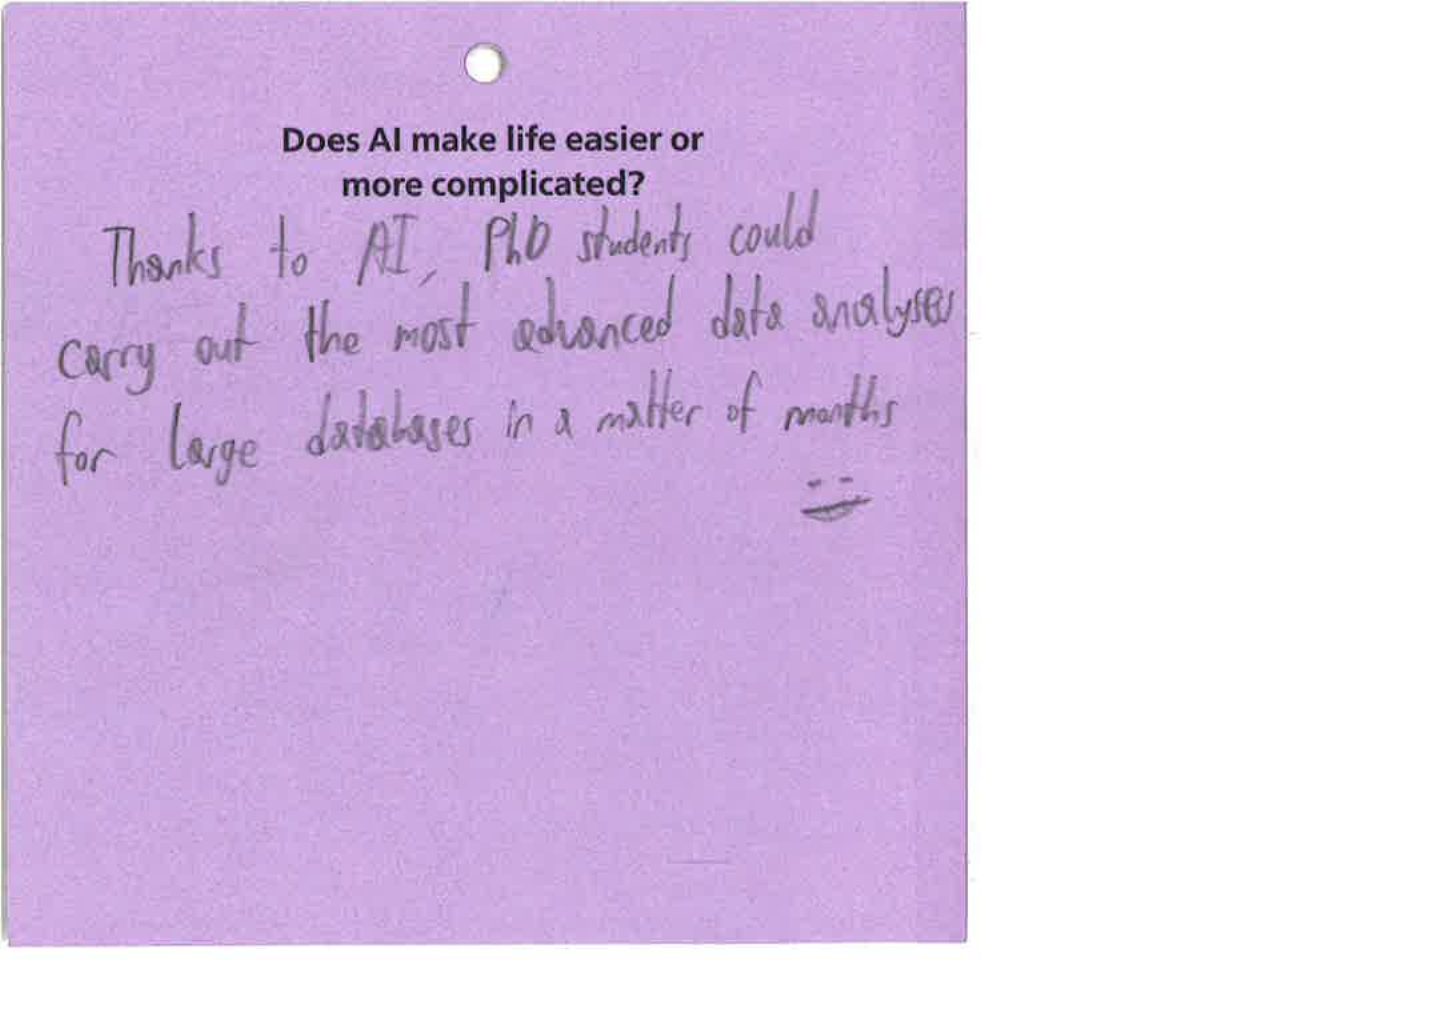 Does AI make life easier or
more complicated?
Thanks to AI, PhD students could
carry out the most advanced data analyses
for large databases in a matter of months